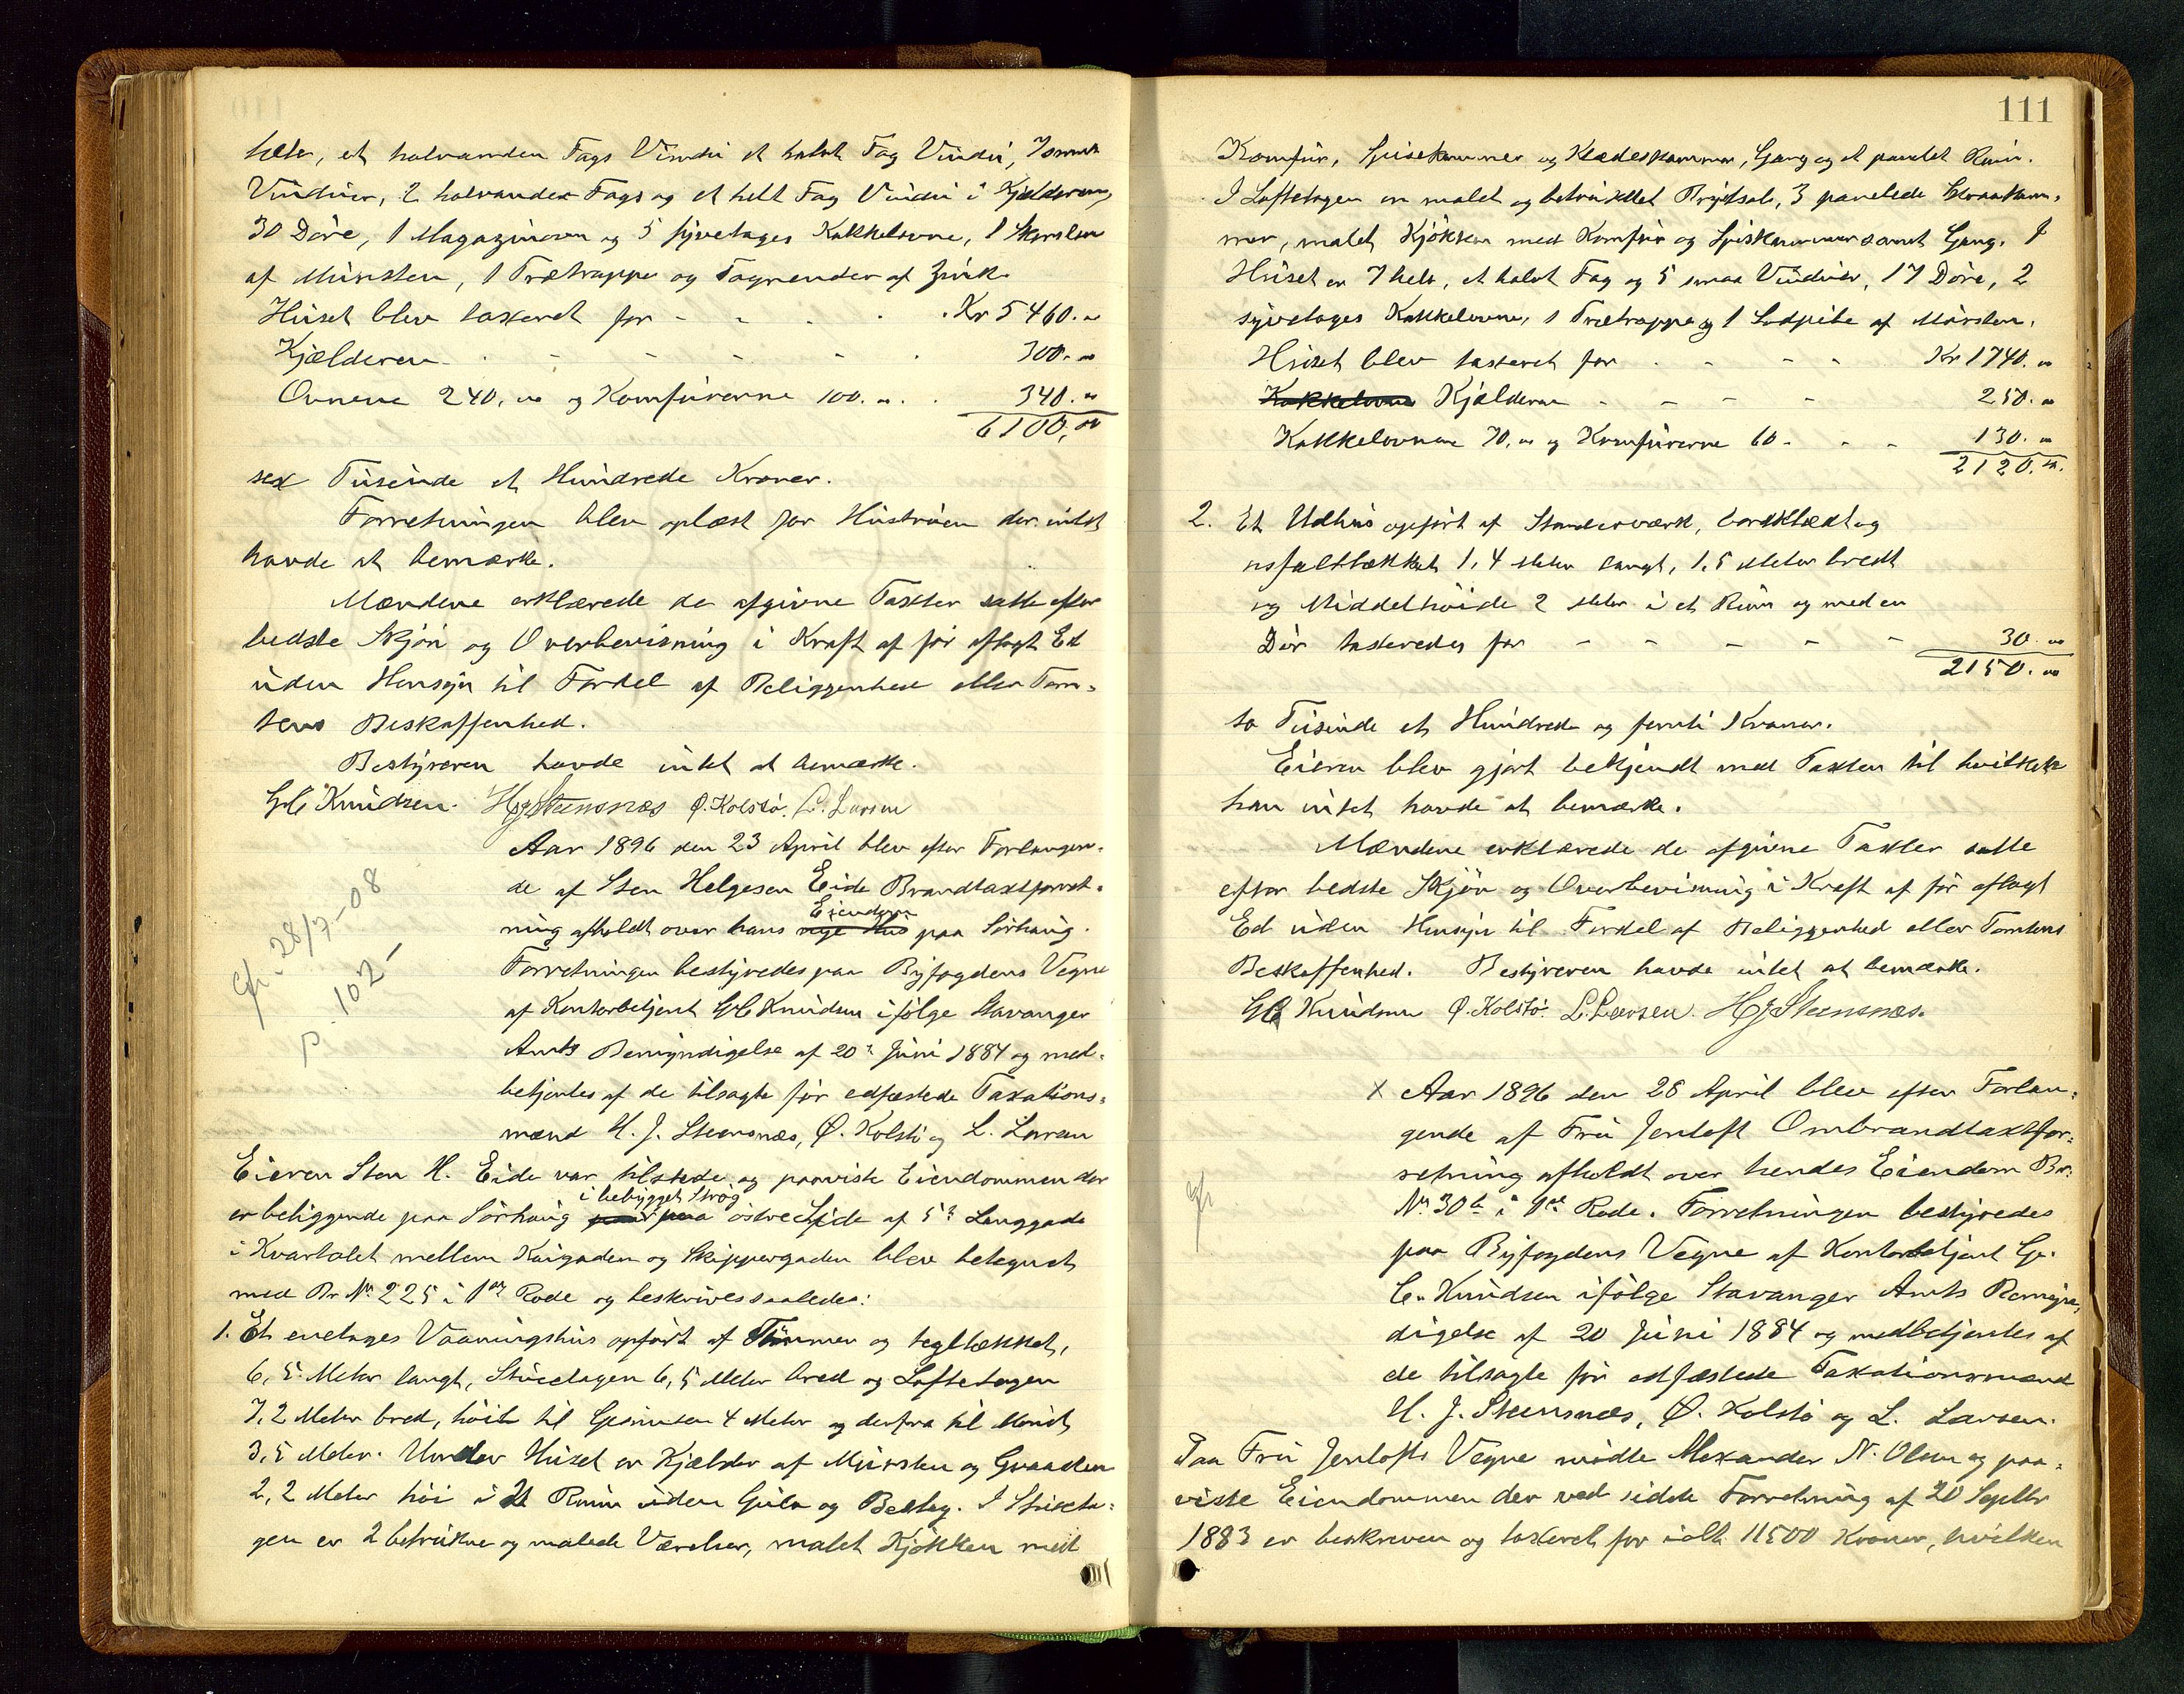 hele, et halvanden Fags Vindu et halvt Fag Vindu, 7 smaa
Vinduer, 2 halvanden Fags og et helt Fag Vindu i Kjælderen,
30 Döre, 1 Magazinovn og 5 syvetages Kakkelovne, 1 Skorsten
af Mursten, 1 Trætrappe og Tagrender af Zink.
Huset blev taxeret for - - - - Kr 5460. "
Kjælderen - - - - 300. "
Ovnene 240. " og Komfurerne 100. " . 340. "
6100. "
sex Tusinde et Hundrede Kroner.
Forretningen blev oplæst for Hustruen der intet
havde at bemærke.
Mændene erklærede de afgivne Taxter satte efter
bedste Skjön og Overbevisning i Kraft af för aflagt Ed
uden Hensyn til Fordel af Beliggenhed eller Tom-
tens Beskaffenhed.
Bestyreren havde intet at bemærke.
G C Knudsen. H J Steensnæs Ø. Kolstø. L. Larsen
Aar 1896 den 23 April blev efter Forlangen-
de af Sten Helgesen Eide Brandtaxtforret-
Eiendom
ning afholdt over hans nye Hus paa Sörhaug.
Forretningen bestyredes paa Byfogdens Vegne
af Kontorbetjent G C Knudsen ifölge Stavanger
Amts Bemyndigelse af 20de Juni 1884 og med-
betjentes af de tilsagte för edfæstede Taxations-
mænd H. J. Steensnæs, Ø. Kolstö og L. Larsen
Cfr. 28/7-08
p. 102 -
Eieren Sten H. Eide var tilstede og paaviste Eiendommen der
i bebygget Strög
er beliggende paa Sörhaug paa östre Side af 5te Langgade
i Kvartalet mellem Kaigaden og Skippergaden blev betegnet
med Br No 225 i 1ste Rode og beskrives saaledes:
1. Et enetages Vaaningshus opfört af Tömmer og tegltækket,
6,5 Meter langt, Stueetagen 6,5 Meter bred og Loftetagen
7,2 Meter bred, höit til Gesimsen 4 Meter og derfra til Mönet
3,5 Meter. Under Huset er Kjælder af Mursten og Graasten
2,2 Meter höi i et Rum uden Gulv og Beslag. I Stueeta-
gen er 2 betrukne og malede Værelser, malet Kjökken med
111
Komfur, Spisekammer og Klædeskammer, Gang og et panelet Rum.
I Loftetagen er malet og betrukket Brystsal, 3 panelede Skraakam-
mer, malet Kjökken med Komfur og Spiskammer samt Gang. I
Huset er 7 hele, et halvt Fag og 5 smaa Vinduer, 17 Döre, 2
syvetages Kakkelovne, 1 Trætrappe og 1 Sodpibe af Mursten.
Huset blev taxeret for - - - - Kr 1740. "
Kakkelovne Kjælderen - - - - 250. "
Kakkelovnene 70. " og Komfurerne 60 - - - 130. "
2120. "
2. Et Udhus opfört af Standerværk, bordklædt og
asfalttækket 1,4 Meter langt, 1,5 Meter bredt
og Middelhöide 2 Meter i et Rum og med en
Dör taxeredes for - - - - - 30 "
2150. "
to Tusinde et Hundrede og femti Kroner.
Eieren blev gjort bekjendt med Taxten til hvilken
han intet havde at bemærke.
Mændene erklærede de afgivne Taxter satte
efter bedste Skjön og Overbevisning i Kraft af för aflagt
Ed uden Hensyn til Fordel af Beliggenhed eller Tomtens
Beskaffenhed. Bestyreren havde intet at bemærke.
G C Knudsen Ø. Kolstø. L. Larsen. H J Steensnæs.
x Aar 1896 den 28 April blev efter Forlan-
gende af Fru Jentoft Ombrandtaxtfor-
retning afholdt over hendes Eiendom Br.
No 30b i 1ste Rode. Forretningen bestyredes
paa Byfogdens Vegne af Kontorbetjent G.
C. Knudsen ifölge Stavanger Amts Bemyn-
digelse af 20 Juni 1884 og medbetjentes af
de tilsagte för edfæstede Taxationsmænd
H. J. Steensnæs, Ø. Kolstö og L. Larsen.
Cfr
Paa Fru Jentofts Vegne mödte Alexander N. Olsen og paa-
viste Eiendommen der ved sidste Forretning af 20 Septbr
1883 er beskreven og taxeret for ialt 11500 Kroner, hvilken